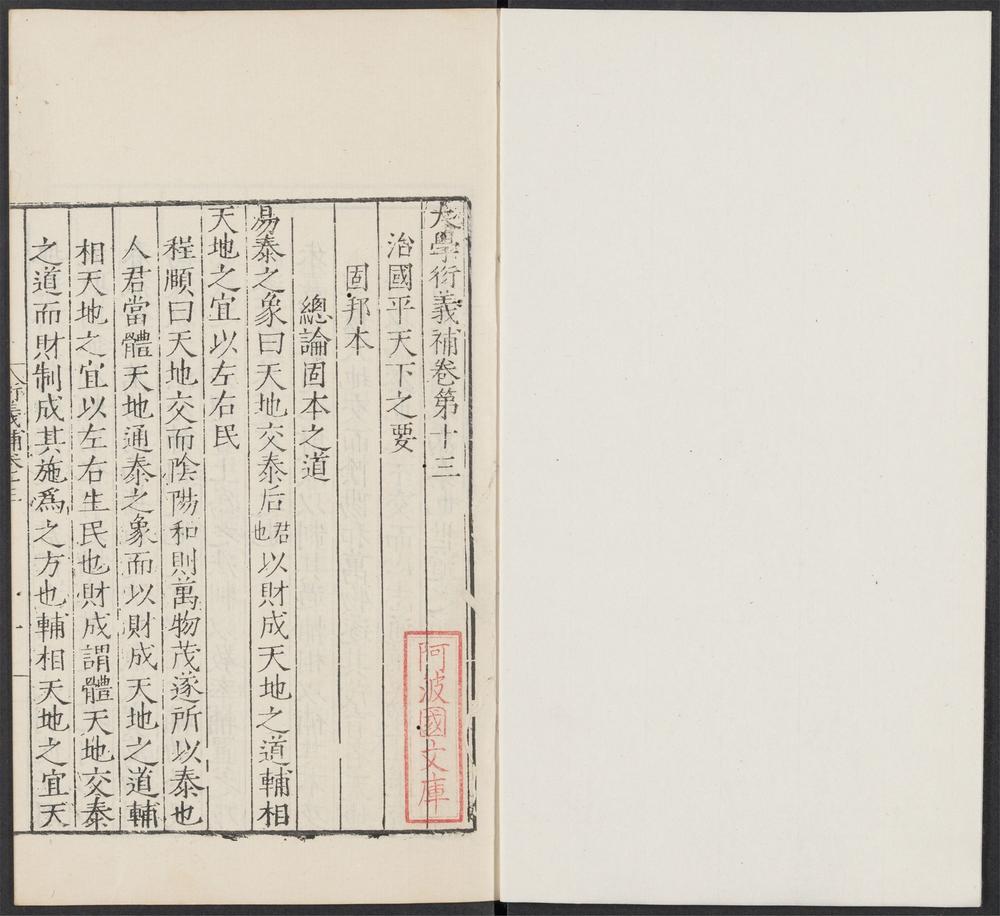 大學衍義補卷第十三
治國平天下之要
固邦本
總論固本之道
易泰之象曰天地交泰后君也以財成天地之道輔相
天地之宜以左右民
程頤曰天地交而陰陽和則萬物茂遂所以泰也
人君當體天地通泰之象而以財成天地之道輔
相天地之宜以左右生民也財成謂體天地交泰
之道而財制成其施爲之方也輔相天地之宜天
衍義補卷十三
一
阿波國文庫